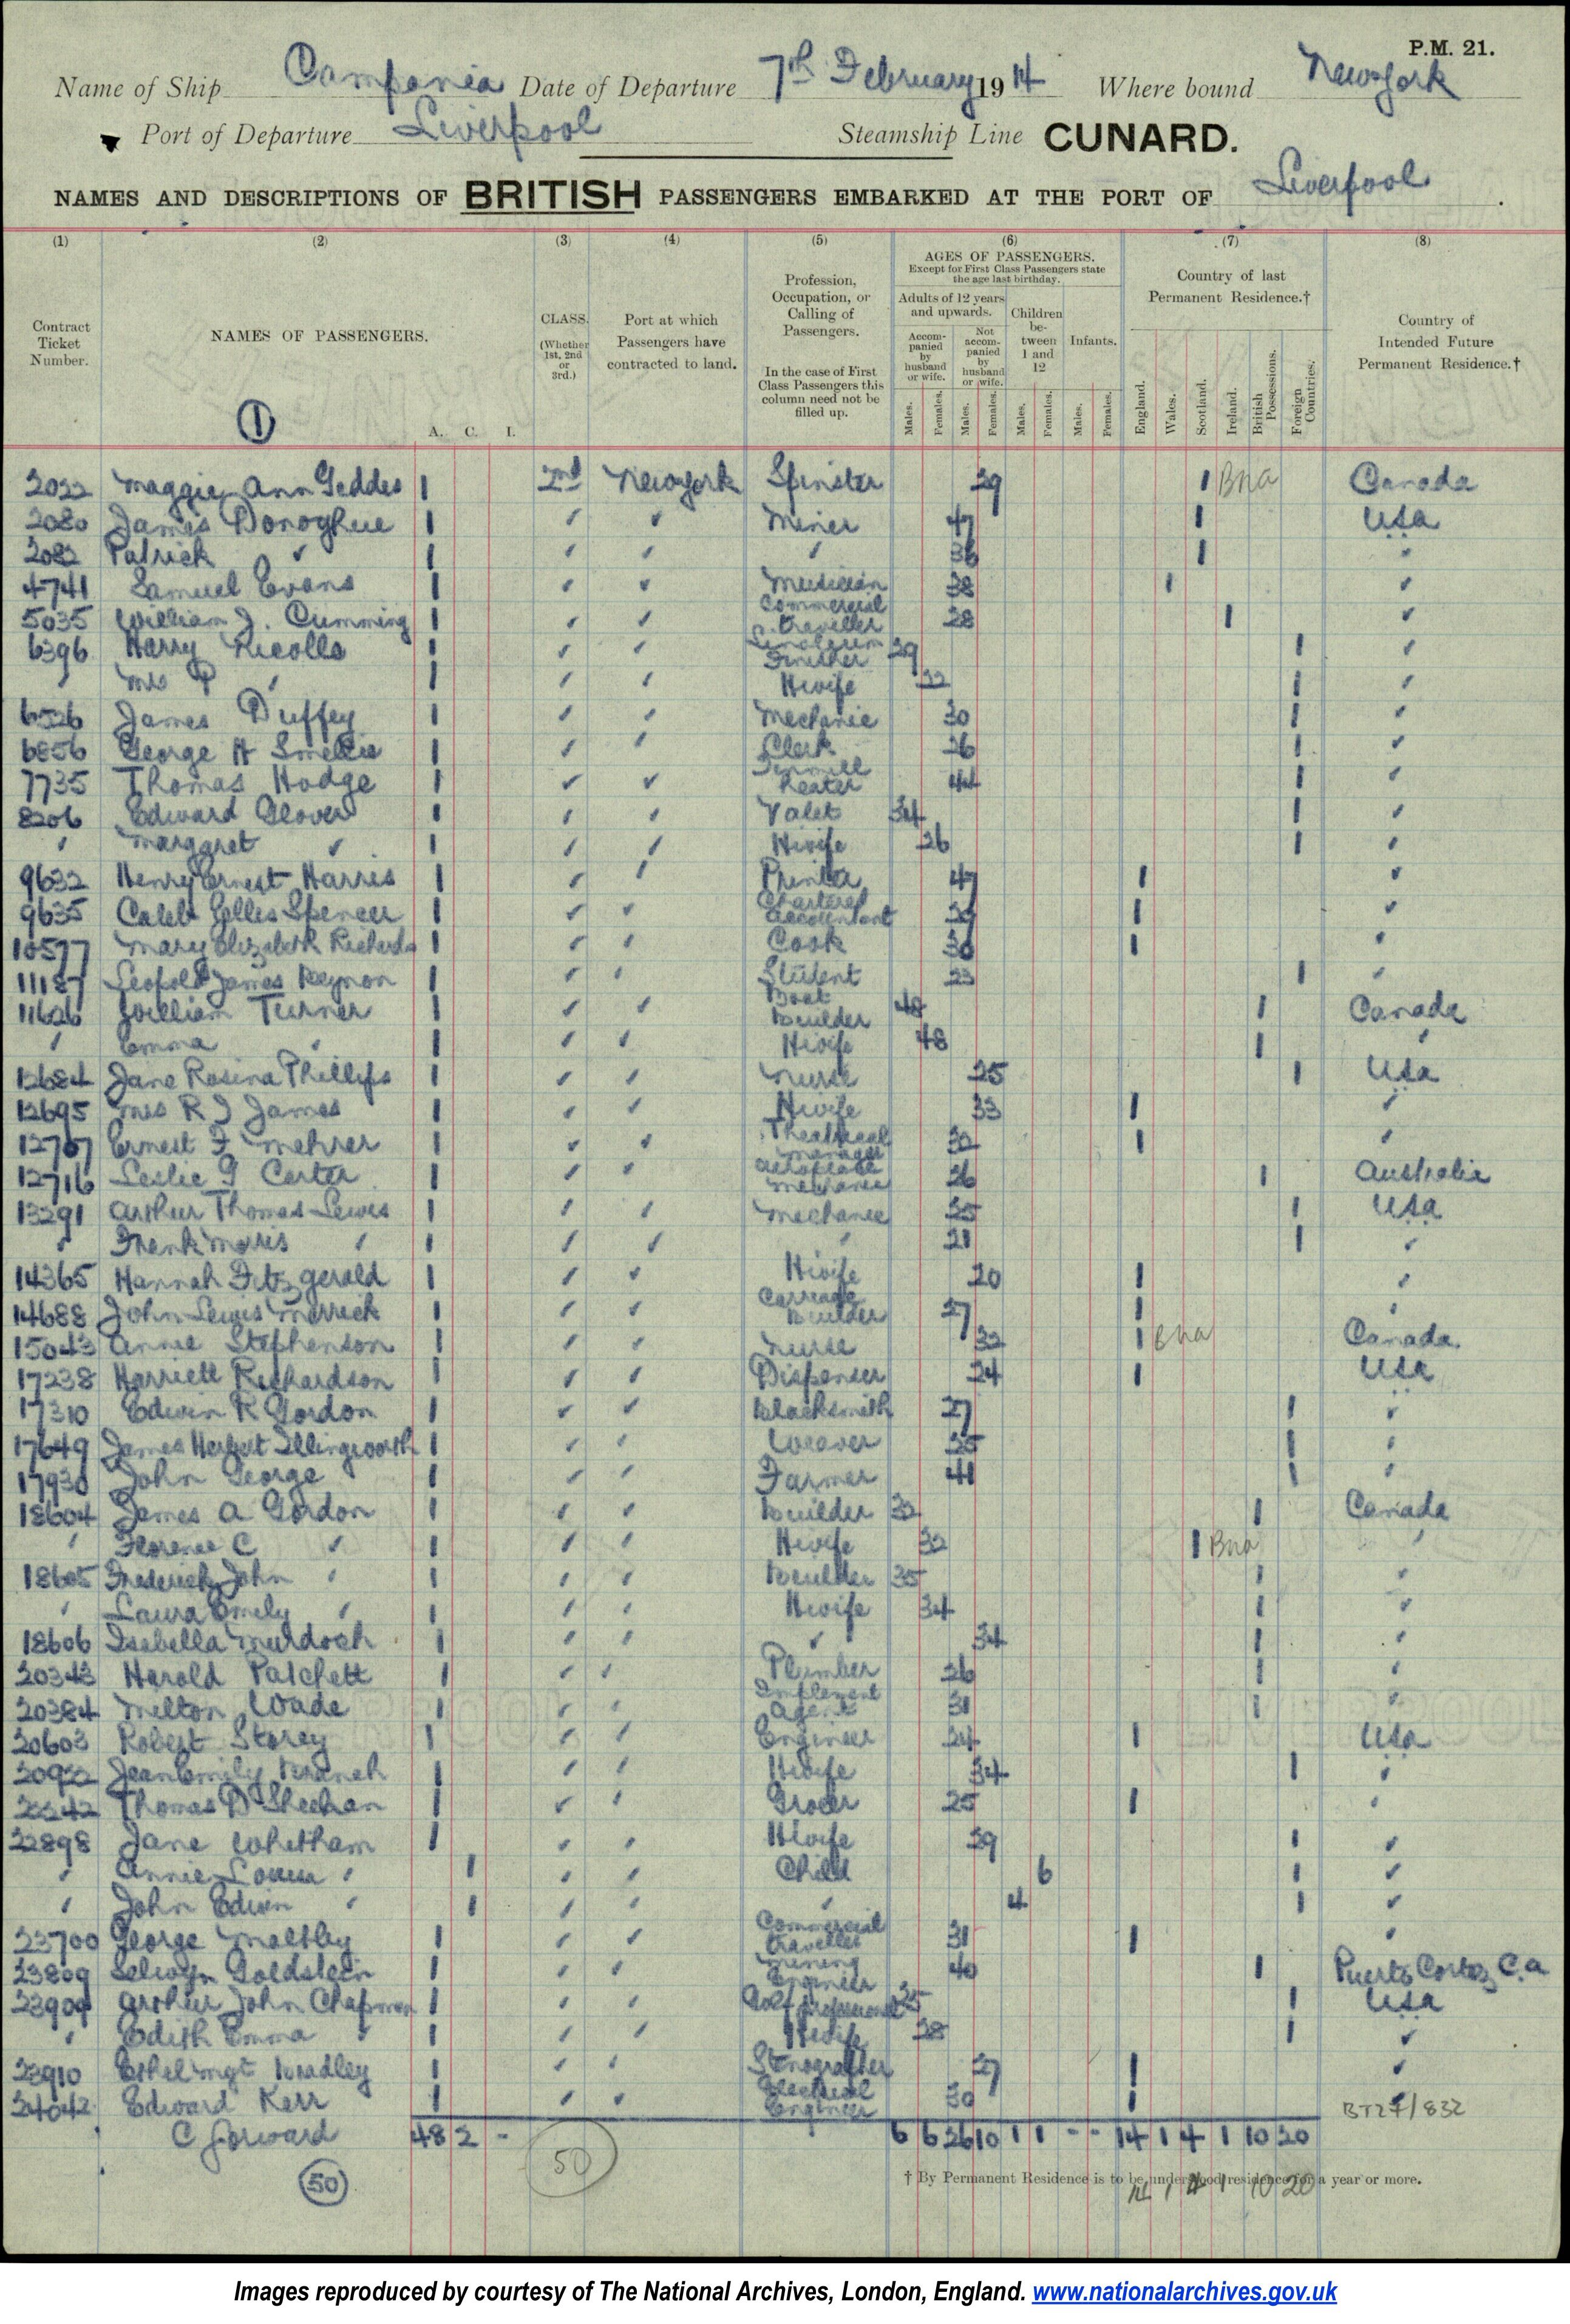 P.M. 21.
Name of Ship Campania Date of Departure 7th February 1914 Where bound New York
Port of Departure Liverpool Steamship Line CUNARD.
NAMES AND DESCRIPTIONS OF BRITISH PASSENGERS EMBARKED AT THE PORT OF Liverpool.
(1) (2) (3) (4) (5) (6) (7) (8)
Contract Ticket Number.
NAMES OF PASSENGERS.
1
A. C. I.
CLASS. (Whether 1st, 2nd or 3rd.)
Port at which Passengers have contracted to land.
Profession, Occupation, or Calling of Passengers.
In the case of First Class Passengers this column need not be filled up.
AGES OF PASSENGERS.
Except for First Class Passengers state the age last birthday.
Adults of 12 years and upwards.
Accompanied by husband or wife.
Not accompanied by husband or wife.
Children between 1 and 12
Infants.
Males. Females. Males. Females. Males. Females. Males. Females.
Country of last Permanent Residence.†
England. Wales. Scotland. Ireland. British Possessions. Foreign Countries.
Country of Intended Future Permanent Residence.†
2022 Maggie Ann Geddes 1 2nd New York Spinster 29 1 Bna Canada
2080 James Donoghue 1 " " Miner 47 1 USA
2082 Patrick " 1 " " " 36 1 "
4741 Samuel Evans 1 " " Musician 38 1 "
5035 William J. Cumming 1 " " Commercial traveller 28 1 "
6396 Harry Nicolls 1 " " Linoleum Finisher 29 1 "
" Mrs P " 1 " " Hwife 22 1 "
6526 James Duffey 1 " " Mechanic 30 1 "
6856 George H Smellie 1 " " Clerk 26 1 "
7735 Thomas Hodge 1 " " heater 44 1 "
8206 Edward Glover 1 " " Valet 34 1 "
" Margaret " 1 " " Hwife 26 1 "
9632 Henry Ernest Harris 1 " " Printer 47 1 "
9635 Caleb Spencer 1 " " Chartered accountant 1 "
10577 Mary Elizabeth Richards 1 " " Cook 30 1 "
11187 Leopold James Reynon 1 " " Student 23 1 "
11626 William Turner 1 " " Boat builder 48 1 Canada
" Emma " 1 " " Hwife 48 1 "
12684 Jane Rosina Phillips 1 " " Nurse 25 1 USA
12695 Mrs R J James 1 " " Hwife 33 1 "
12707 Ernest F Mehrer 1 " " Theatrical manager 32 1 "
12716 Leslie G Carter 1 " " aeroplane mechanic 26 1 Australia
13291 Arthur Thomas Lewis 1 " " Mechanic 25 1 USA
" Frank Morris " 1 " " " 21 1 "
14365 Hannah Fitzgerald 1 " " Hwife 20 1 "
14688 John Lewis Merrick 1 " " Carriage builder 27 1 "
15043 Annie Stephenson 1 " " Nurse 32 1 Bna Canada.
17238 Harriett Richardson 1 " " Dispenser 24 1 USA
17310 Edwin R Gordon 1 " " blacksmith 27 1 "
17649 James Herbert Illingworth 1 " " Weaver 25 1 "
17930 John George 1 " " Farmer 41 1 "
18604 James A Gordon 1 " " builder 32 1 Canada
" Florence C " 1 " " Hwife 32 1 Bna "
18605 Frederick John " 1 " " builder 35 1 "
" Laura Emily " 1 " " Hwife 34 1 "
18606 Isabella Murdoch 1 " " " 34 1 "
20343 Harold Patchett 1 " " Plumber 26 1 "
20384 Milton Wade 1 " " Implement agent 31 1 "
20603 Robert Storey 1 " " Engineer 24 1 USA
20922 Jean Emily Branch 1 " " Hwife 34 1 "
Thomas D Sheehan 1 " " Grocer 25 1 "
22898 Jane Whetham 1 " " Hwife 29 1 "
" Annie Louisa " 1 " " Child 6 1 "
" John Edwin " 1 " " " 4 1 "
23700 George Maltby 1 " " Commercial traveller 31 1 "
23809 Selwyn Goldstein 1 " " Mining Engineer 40 1 Puerto Cortez C.a
23909 Arthur John Chapman 1 " " Golf professional 35 1 USA
" Edith Emma " 1 " " Hwife 28 1 "
23910 Ethel Mgt Bradley 1 " " Stenographer 27 1 "
24042 Edward Kerr 1 " " Electrical Engineer 30 1 "
BT27/832
C Forward 48 2 - 6 6 26 10 1 1 - - 14 1 4 1 10 20
50
50
† By Permanent Residence is to be understood residence for a year or more.
14 1 4 1 10 20
Images reproduced by courtesy of The National Archives, London, England. www.nationalarchives.gov.uk